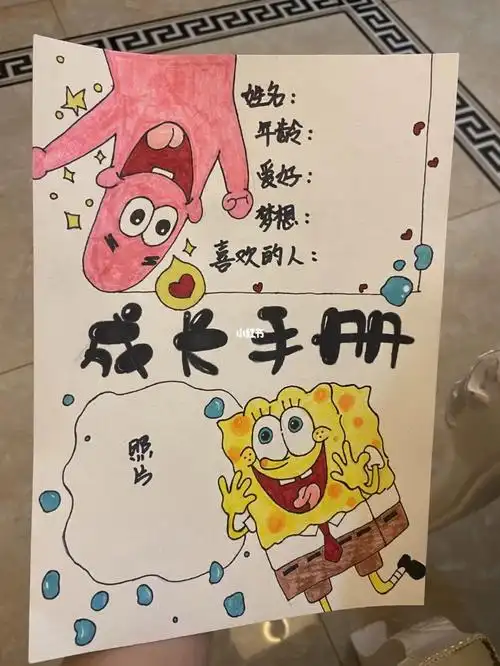 姓名：
年龄：
爱好：
梦想：
喜欢的人：
成长手册
小红书
照片